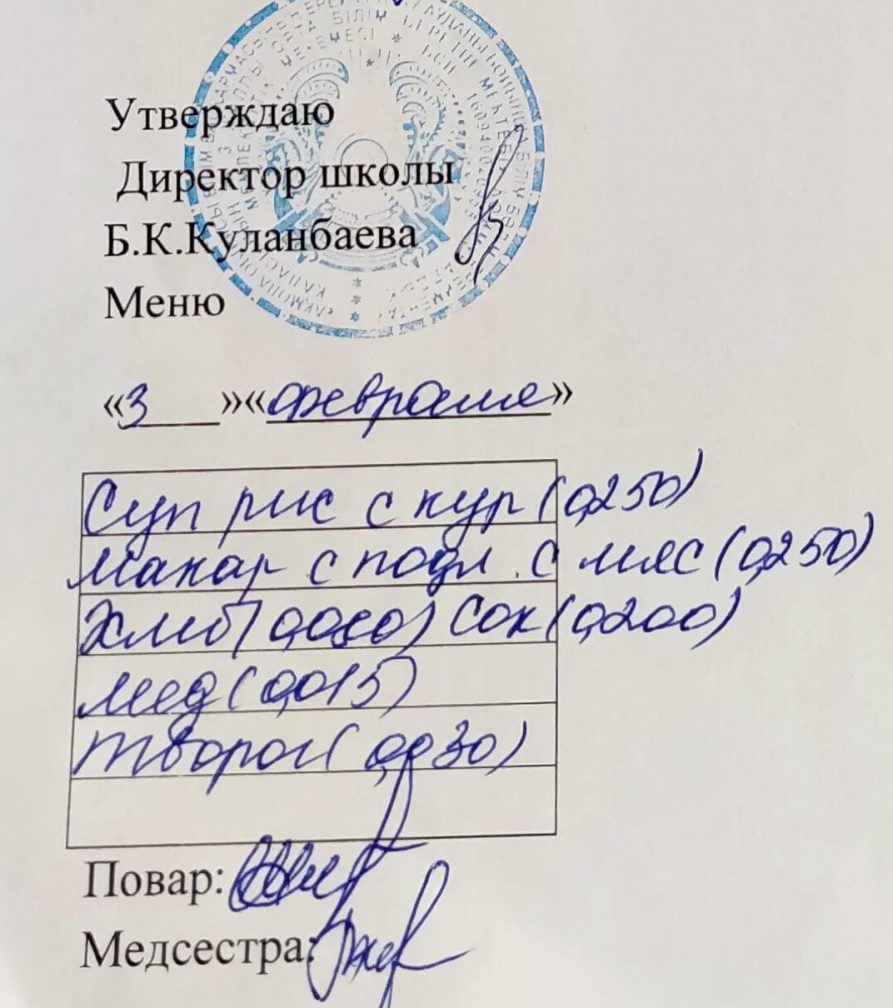 Утверждаю
Директор школы
Б.К.Куланбаева
Меню
«3___»«февраля»
Суп рис с кур (0,250)
Макар с подл. с мяс (0,250)
Хлеб (0,080) Сок (0,200)
Мед (0,015)
Творог (0,030)
Повар:
Медсестра: